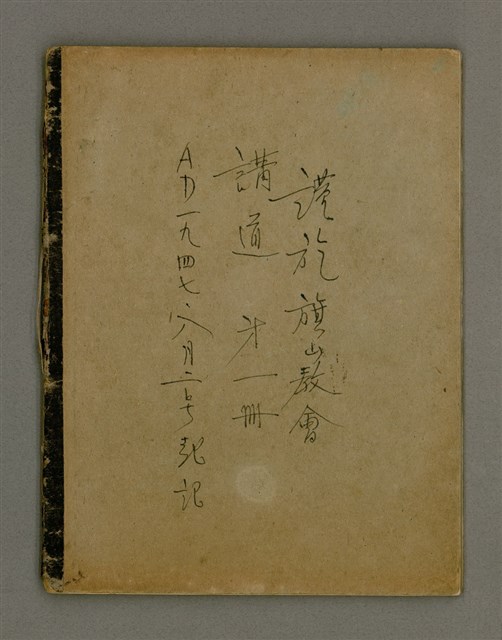 謹於旗山教會
講道 才一冊
AD一九四七、八月二号起記